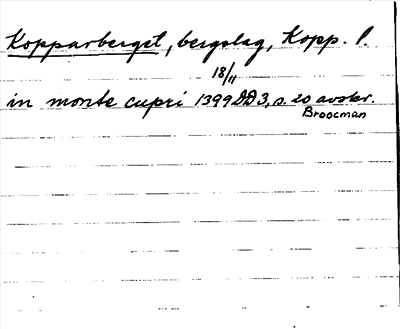 Kopparberget, bergslag, Kopp. l.
18/11
in monte cupri 1399 DD3, s. 20 avskr.
Broocman